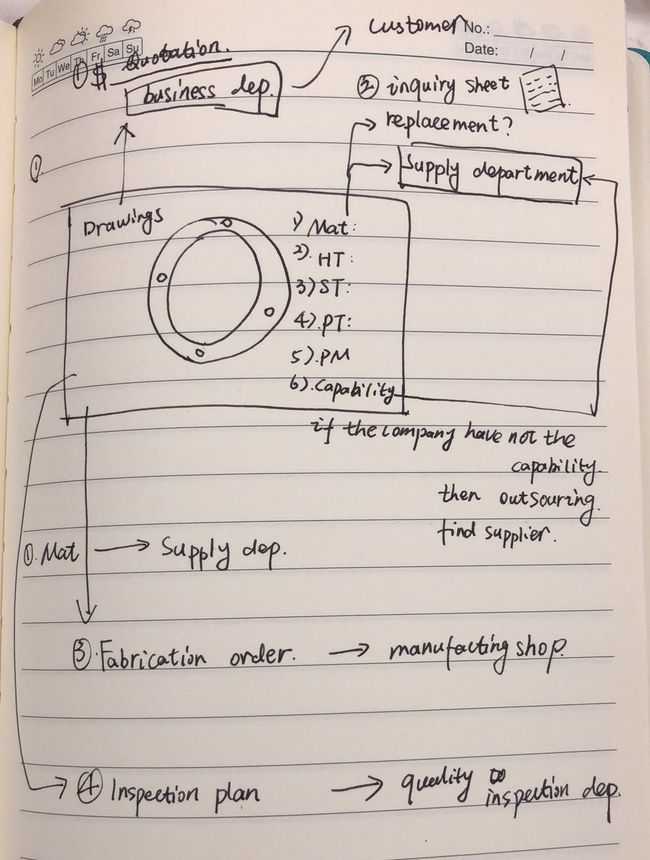 Customer No.:
Date: / /
Mo Tu We Th Fr Sa Su
① $ Quotation.
business dep.
② inquiry sheet
replacement?
①
Supply department
Drawings
1) Mat:
2). HT:
3) ST:
4). PT:
5). PM
6). Capability
if the company have not the
capability.
then outsouring.
find supplier.
①. Mat → Supply dep.
③. Fabrication order. → manufacting shop.
④ Inspection plan → quality inspection dep.